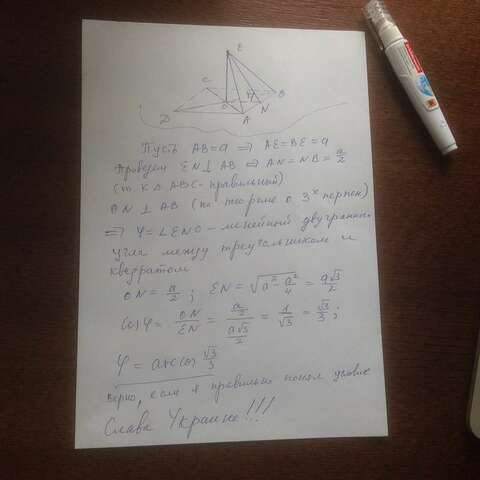 E
C
O
M
B
D
A
N
Пусть AB=a ⇒ AE=BE=a
Проведем EN⊥AB ⇒ AN=NB=a/2
(т.к △ABC-правильный)
ON ⊥ AB (по теореме о 3ˣ перпен)
⇒ φ=∠ENO - линейный двугранн.
угла между треугольником и
квадратом
ON=a/2; EN=√(a²-a²/4)=a√3/2
Cos φ=ON/EN=(a/2)/(a√3/2)=1/√3=√3/3;
φ=arccos √3/3
верно, если я правильно понял условие
Слава Украине!!!